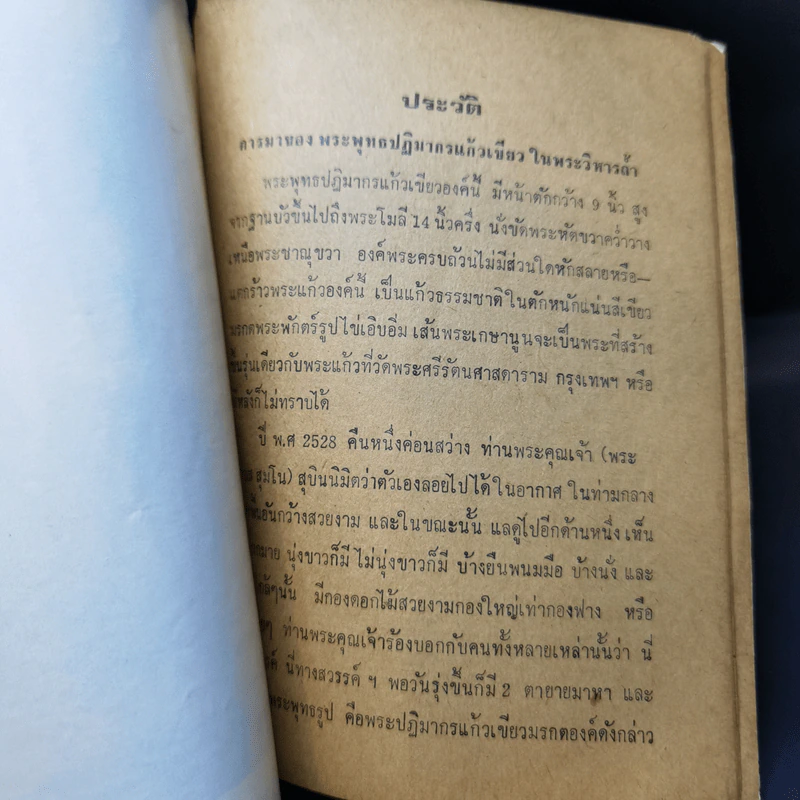 ประวัติ
การมาของ พระพุทธปฏิมากรแก้วเขียว ในพระวิหารถ้ำ
พระพุทธปฏิมากรแก้วเขียวองค์นี้ มีหน้าตักกว้าง 9 นิ้ว สูง
จากฐานบัวขึ้นไปถึงพระโมลี 14 นิ้วครึ่ง นั่งขัดพระหัตขวาคว่ำวาง
เหนือพระชาณุขวา องค์พระครบถ้วนไม่มีส่วนใดหักสลายหรือ—
แตกร้าวพระแก้วองค์นี้ เป็นแก้วธรรมชาติในตักหนักแน่นสีเขียว
มรกตพระพักตร์รูปไข่เอิบอิ่ม เส้นพระเกษานูนจะเป็นพระที่สร้าง
ขึ้นรุ่นเดียวกับพระแก้วที่วัดพระศรีรัตนศาสดาราม กรุงเทพฯ หรือ
ทีหลังก็ไม่ทราบได้
ปี พ.ศ 2528 คืนหนึ่งค่อนสว่าง ท่านพระคุณเจ้า (พระ
สุมโน) สุบินนิมิตว่าตัวเองลอยไปได้ในอากาศ ในท่ามกลาง
อันกว้างสวยงาม และในขณะนั้น แลดูไปอีกด้านหนึ่ง เห็น
นุ่งขาวก็มี ไม่นุ่งขาวก็มี บ้างยืนพนมมือ บ้างนั่ง และ
ใกล้ๆนั้น มีกองดอกไม้สวยงามกองใหญ่เท่ากองฟาง หรือ
ท่านพระคุณเจ้าร้องบอกกับคนทั้งหลายเหล่านั้นว่า นี่
นี่ทางสวรรค์ ฯ พอวันรุ่งขึ้นก็มี 2 ตายายมาหา และ
พระพุทธรูป คือพระปฏิมากรแก้วเขียวมรกตองค์ดังกล่าว